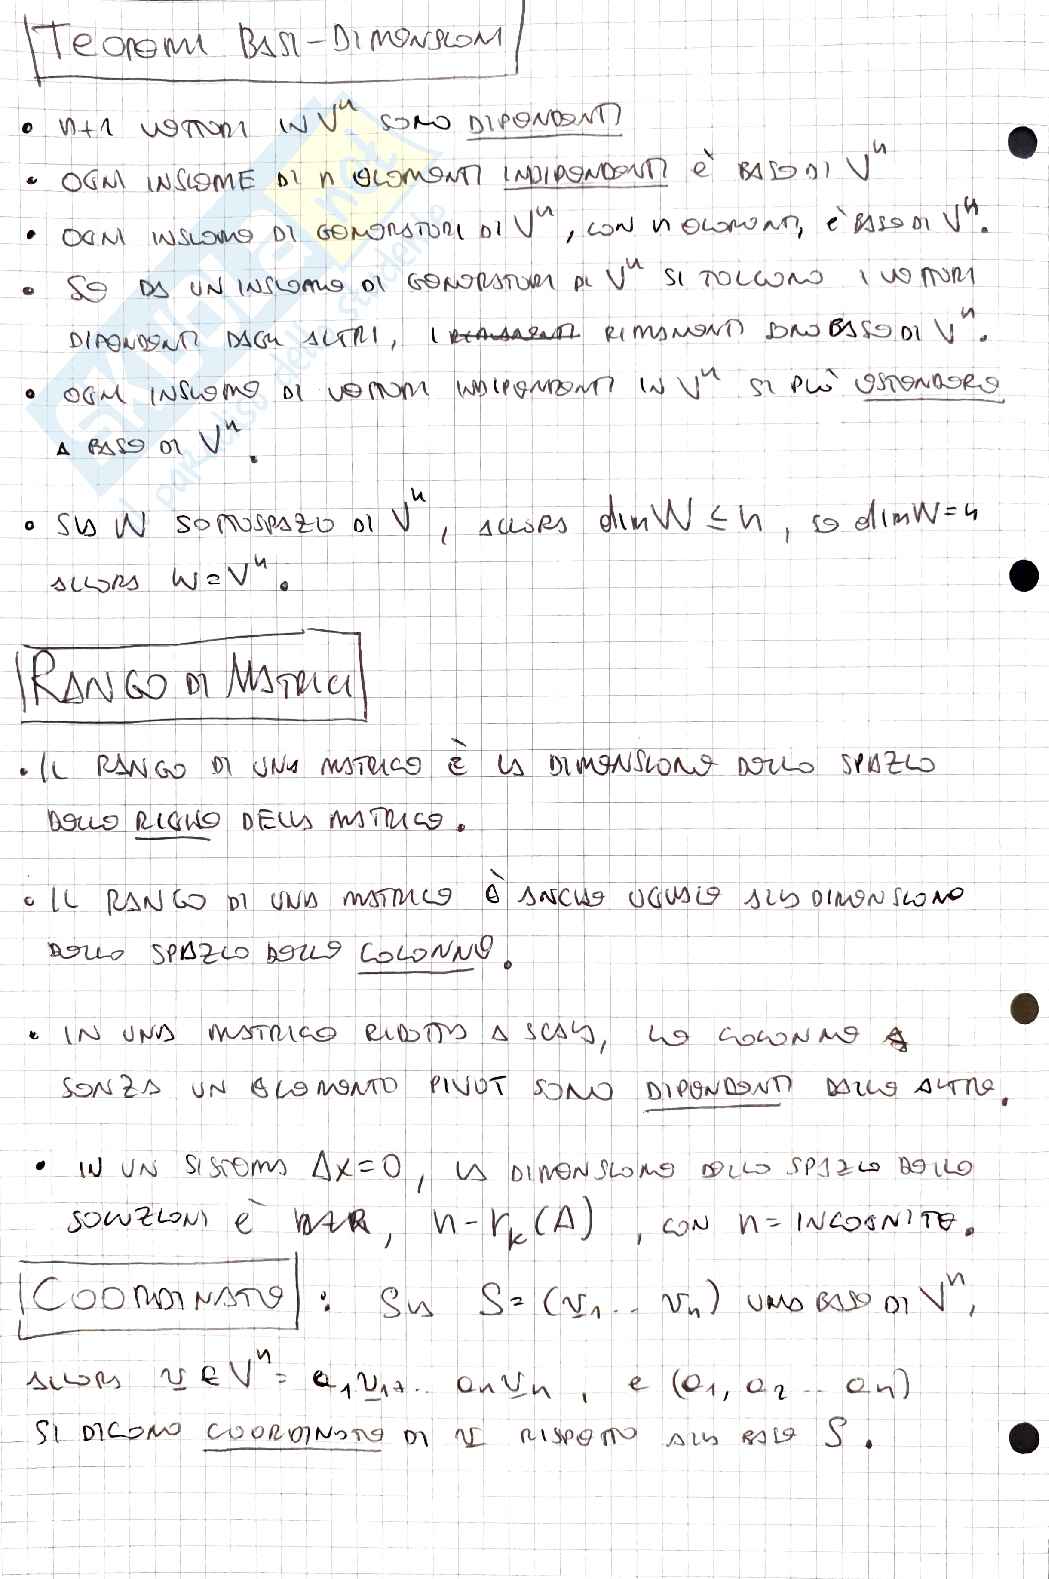 Teoremi Basi-Dimensioni
• n+1 vettori in Vⁿ sono dipendenti
• Ogni insieme di n elementi indipendenti è base di Vⁿ
• Ogni insieme di generatori di Vⁿ, con n elementi, è base di Vⁿ.
• Se da un insieme di generatori di Vⁿ si tolgono i vettori
dipendenti dagli altri, i rimanenti sono base di Vⁿ.
• Ogni insieme di vettori indipendenti in Vⁿ si può estendere
a base di Vⁿ.
• Sia W sottospazio di Vⁿ, allora dim W ≤ n, se dim W = n
allora W = Vⁿ.
Rango di Matrici
• Il rango di una matrice è la dimensione dello spazio
delle righe della matrice.
• Il rango di una matrice è anche uguale alla dimensione
dello spazio delle colonne.
• In una matrice ridotta a scala, le colonne
senza un elemento pivot sono dipendenti dalle altre.
• In un sistema Ax=0, la dimensione dello spazio delle
soluzioni è n - rk(A), con n = incognite.
Coordinate: Sia S = (v₁ .. vₙ) una base di Vⁿ,
allora v ∈ Vⁿ = a₁v₁+.. aₙvₙ, e (a₁, a₂ .. aₙ)
si dicono coordinate di v rispetto alla base S.
SKUOLA.net
paradiso dello studente